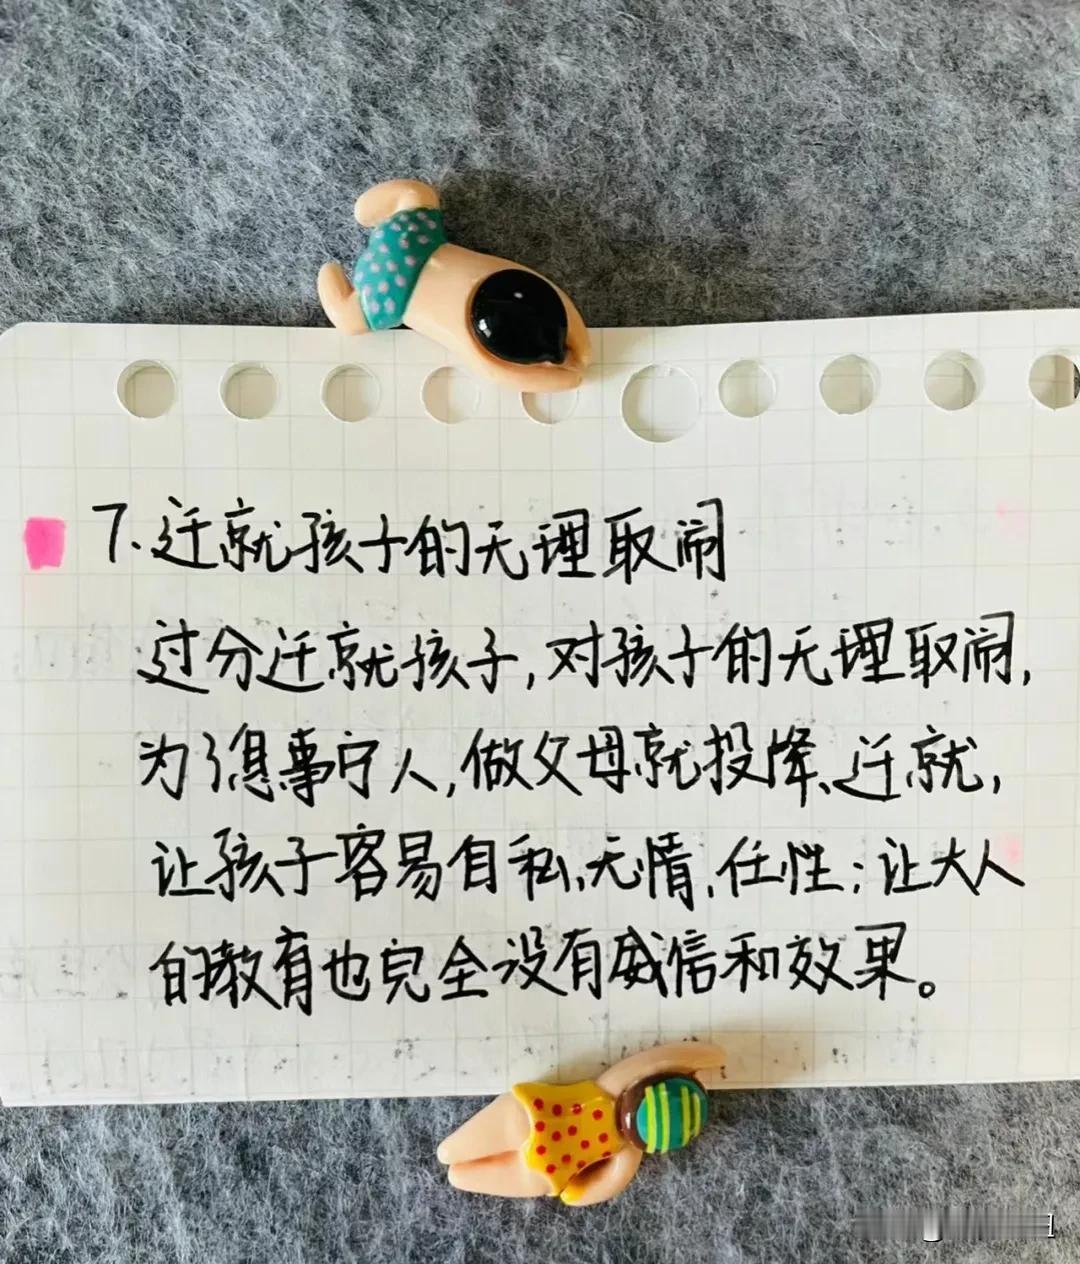 7.迁就孩子的无理取闹
过分迁就孩子,对孩子的无理取闹,
为了息事宁人,做父母就投降、迁就,
让孩子容易自私、无情、任性;让大人
的教育也完全没有威信和效果。